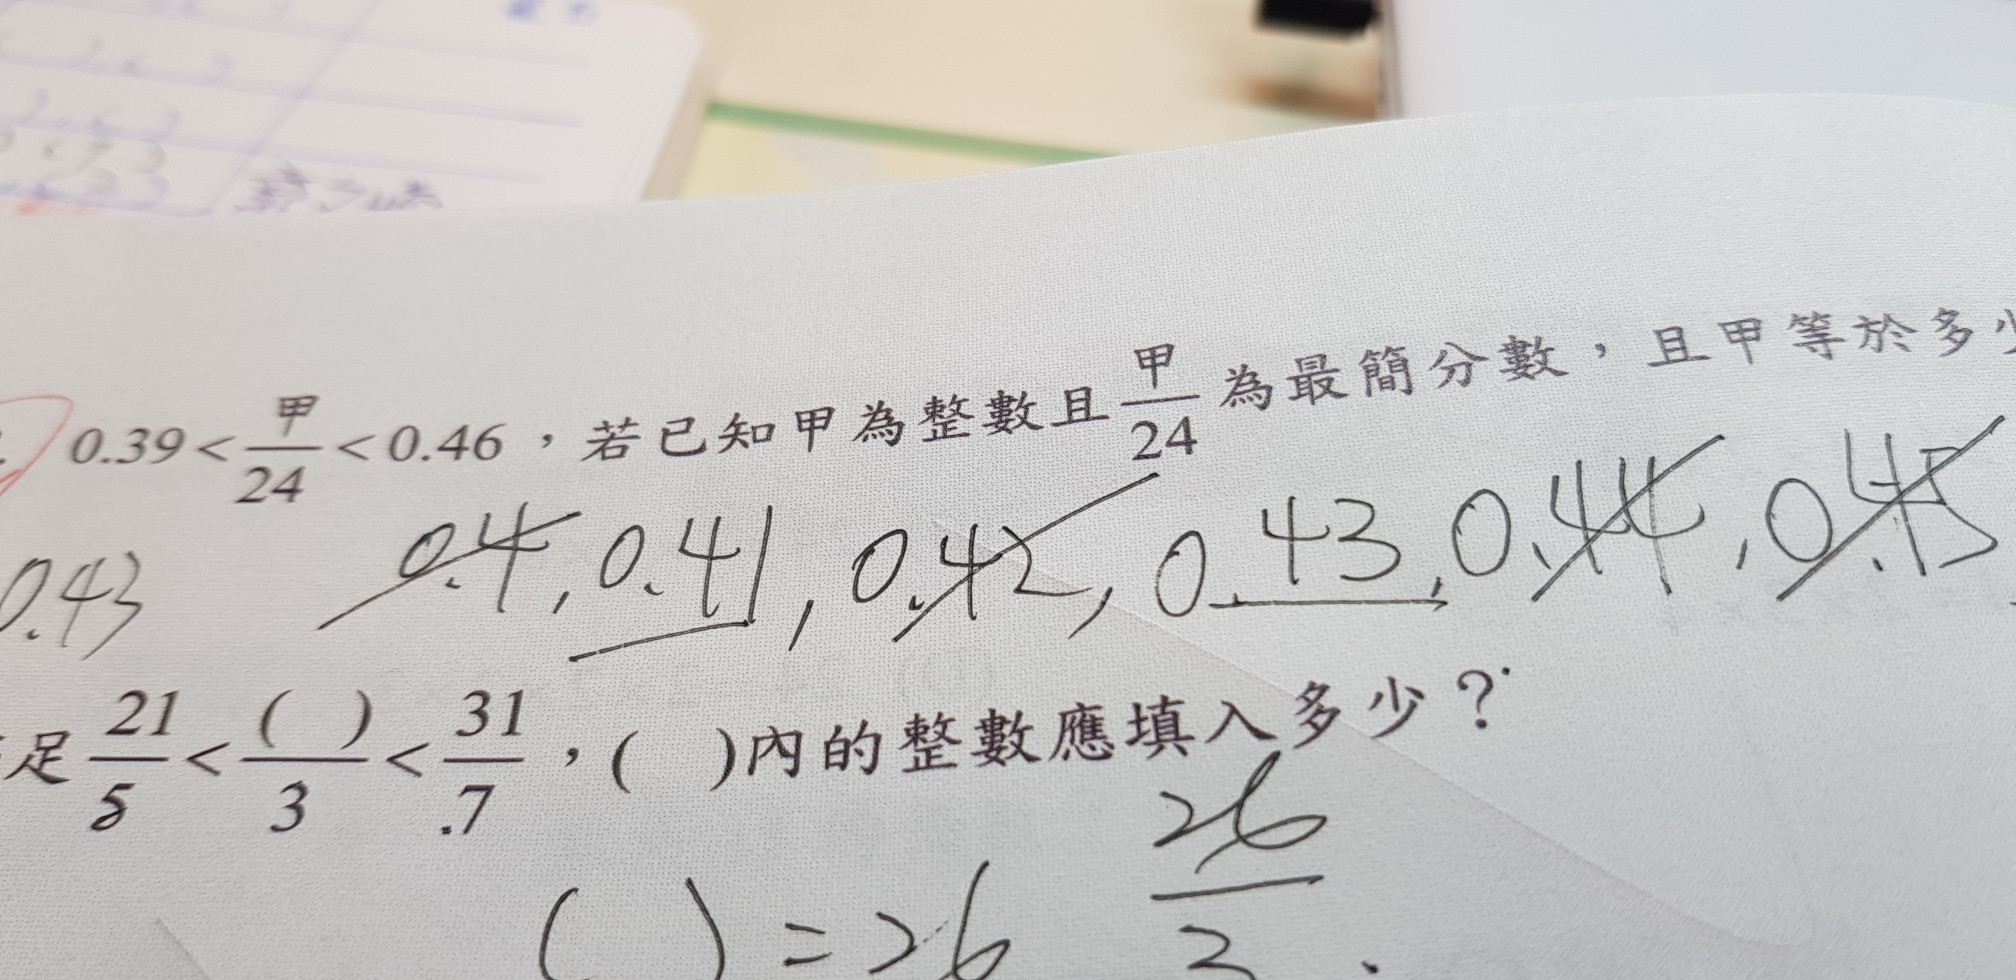 0.39 < 甲/24 < 0.46，若已知甲為整數且 甲/24 為最簡分數，且甲等於多少
0.43 0.4, 0.41, 0.42, 0.43, 0.44, 0.45
足 21/5 < ( )/3 < 31/7，( )內的整數應填入多少？
26/3
( ) = 26